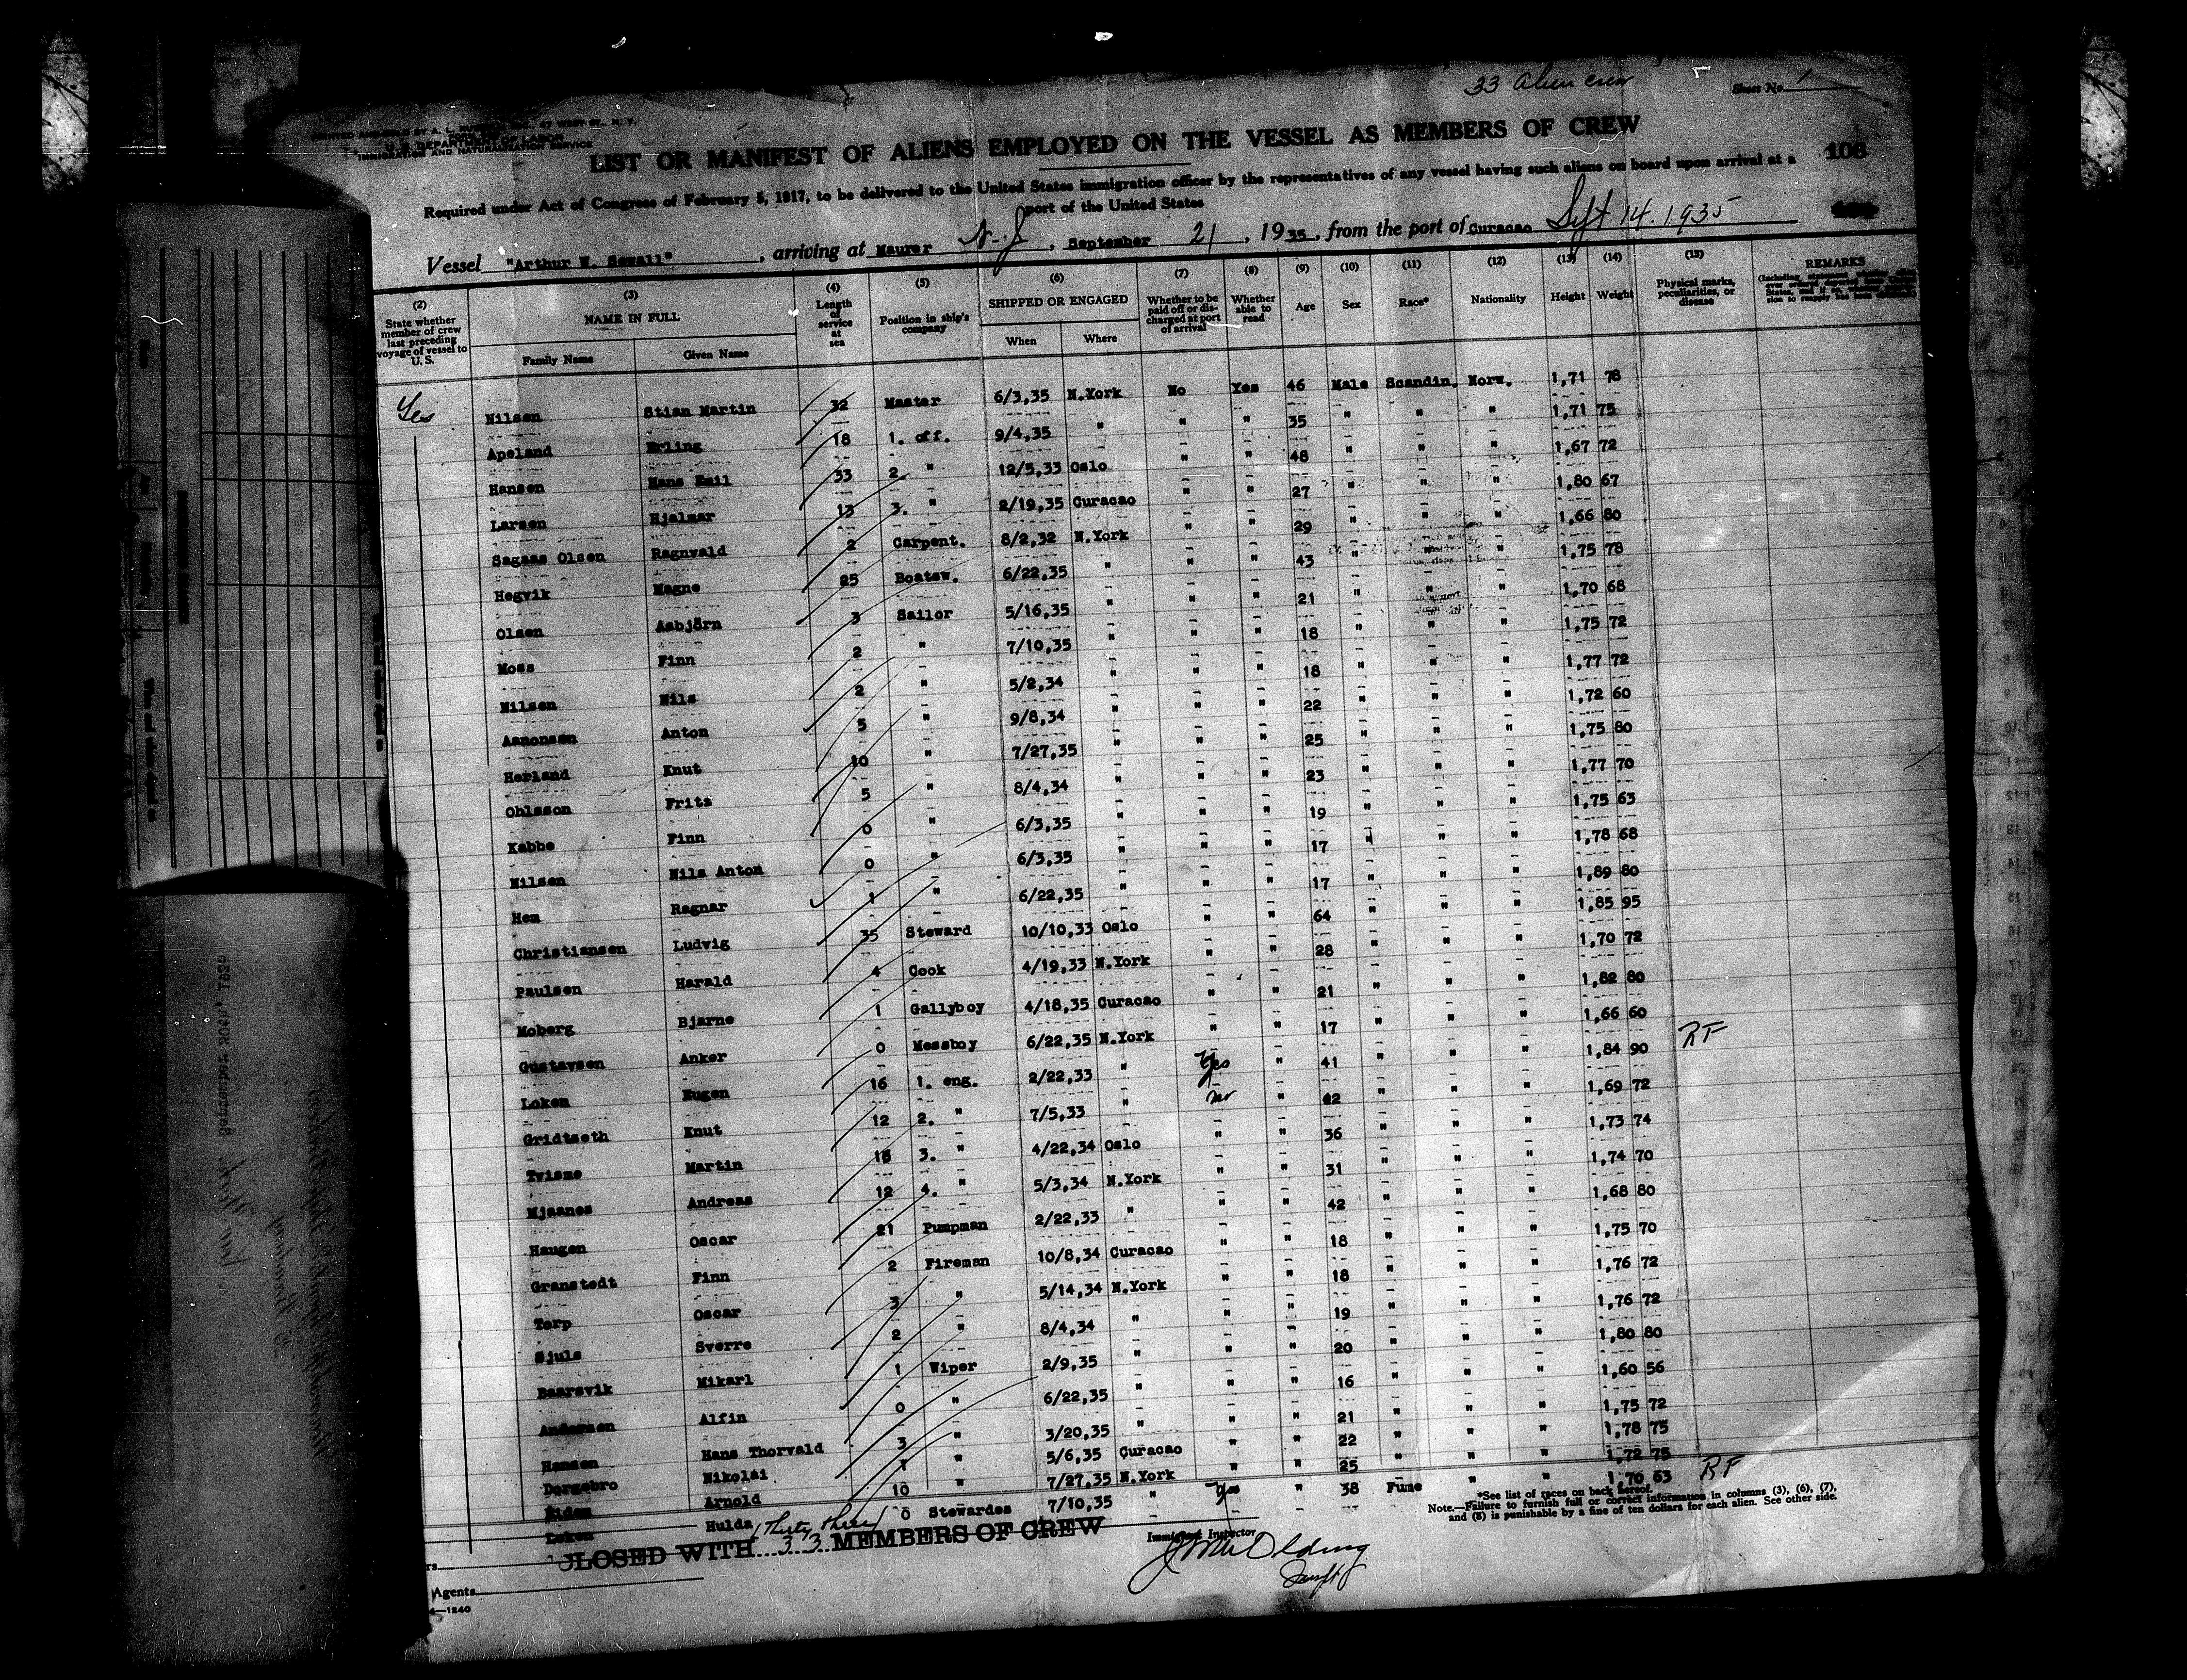 33 Alien crew
Sheet No. 1
U. S. DEPARTMENT OF LABOR
IMMIGRATION AND NATURALIZATION SERVICE
LIST OR MANIFEST OF ALIENS EMPLOYED ON THE VESSEL AS MEMBERS OF CREW
108
Required under Act of Congress of February 5, 1917, to be delivered to the United States immigration officer by the representatives of any vessel having such aliens on board upon arrival at a
port of the United States
Vessel "Arthur W. Sewall", arriving at Maurer N.J., September 21, 1935, from the port of Curacao Sept 14. 1935
(2) (3) (4) (5) (6) (7) (8) (9) (10) (11) (12) (13) (14) (15) REMARKS
State whether member of crew last preceding voyage of vessel to U. S. NAME IN FULL Family Name Given Name Length of service at sea Position in ship's company SHIPPED OR ENGAGED When Where Whether to be paid off or discharged at port of arrival Whether able to read Age Sex Race* Nationality Height Weight Physical marks, peculiarities, or disease
Yes Nilsen Stian Martin 32 Master 6/3,35 N.York No Yes 46 Male Scandin. Norw. 1,71 78
Apeland Erling 18 1. off. 9/4,35 " " " 35 " " " 1,71 75
Hansen Hans Emil 33 2 " 12/5,33 Oslo " " 48 " " " 1,67 72
Larsen Hjalmar 13 3. " 2/19,35 Curacao " " 27 " " " 1,80 67
Sagaas Olsen Ragnvald 2 Carpent. 8/2,32 N.York " " 29 " " " 1,66 80
Hegvik Magne 25 Boatsw. 6/22,35 " " " 43 " " " 1,75 78
Olsen Asbjörn 3 Sailor 5/16,35 " " " 21 " " " 1,70 68
Moss Finn 2 " 7/10,35 " " " 18 " " " 1,75 72
Nilsen Nils 2 " 5/2,34 " " " 18 " " " 1,77 72
Aamonsen Anton 5 " 9/8,34 " " " 22 " " " 1,72 60
Herland Knut 10 " 7/27,35 " " " 25 " " " 1,75 80
Ohlsson Fritz 5 " 8/4,34 " " " 23 " " " 1,77 70
Kabbe Finn 0 " 6/3,35 " " " 19 " " " 1,75 63
Nilsen Nils Anton 0 " 6/3,35 " " " 17 " " " 1,78 68
Hem Ragnar 1 " 6/22,35 " " " 17 " " " 1,89 80
Christiansen Ludvig 35 Steward 10/10,33 Oslo " " 64 " " " 1,85 95
Paulsen Harald 4 Cook 4/19,33 N.York " " 28 " " " 1,70 72
Moberg Bjarne 1 Gallyboy 4/18,35 Curacao " " 21 " " " 1,82 80
Gustavsen Anker 0 Messboy 6/22,35 N.York " " 17 " " " 1,66 60
Loken Eugen 16 1. eng. 2/22,33 " Yes " 41 " " " 1,84 90 RF
Gridtseth Knut 12 2. " 7/5,33 " no " 42 " " " 1,69 72
Tvisme Martin 18 3. " 4/22,34 Oslo " " 36 " " " 1,73 74
Mjaanes Andreas 12 4. " 5/3,34 N.York " " 31 " " " 1,74 70
Haugen Oscar 21 Pumpman 2/22,33 " " " 42 " " " 1,68 80
Granstedt Finn 2 Fireman 10/8,34 Curacao " " 18 " " " 1,75 70
Torp Oscar 3 " 5/14,34 N.York " " 18 " " " 1,76 72
Sjuls Sverre 2 " 8/4,34 " " " 19 " " " 1,76 72
Baarsvik Mikarl 1 Wiper 2/9,35 " " " 20 " " " 1,80 80
Andersen Alfin 0 " 6/22,35 " " " 16 " " " 1,60 56
Hansen Hans Thorvald 3 " 3/20,35 " " " 21 " " " 1,75 72
Dorgebro Nikolai 1 " 5/6,35 Curacao " " 22 " " " 1,78 75
Eiden Arnold 10 " 7/27,35 N.York " " 25 " " " 1,72 75
Loken Hulda 0 Stewardes 7/10,35 " Yes " 38 Fume " " 1,70 63 RF
CLOSED WITH 33 (Thirty three) MEMBERS OF CREW
*See list of races on back hereof.
Note.—Failure to furnish full or correct information in columns (3), (6), (7),
and (8) is punishable by a fine of ten dollars for each alien. See other side.
Immigrant Inspector
Agents
—1240